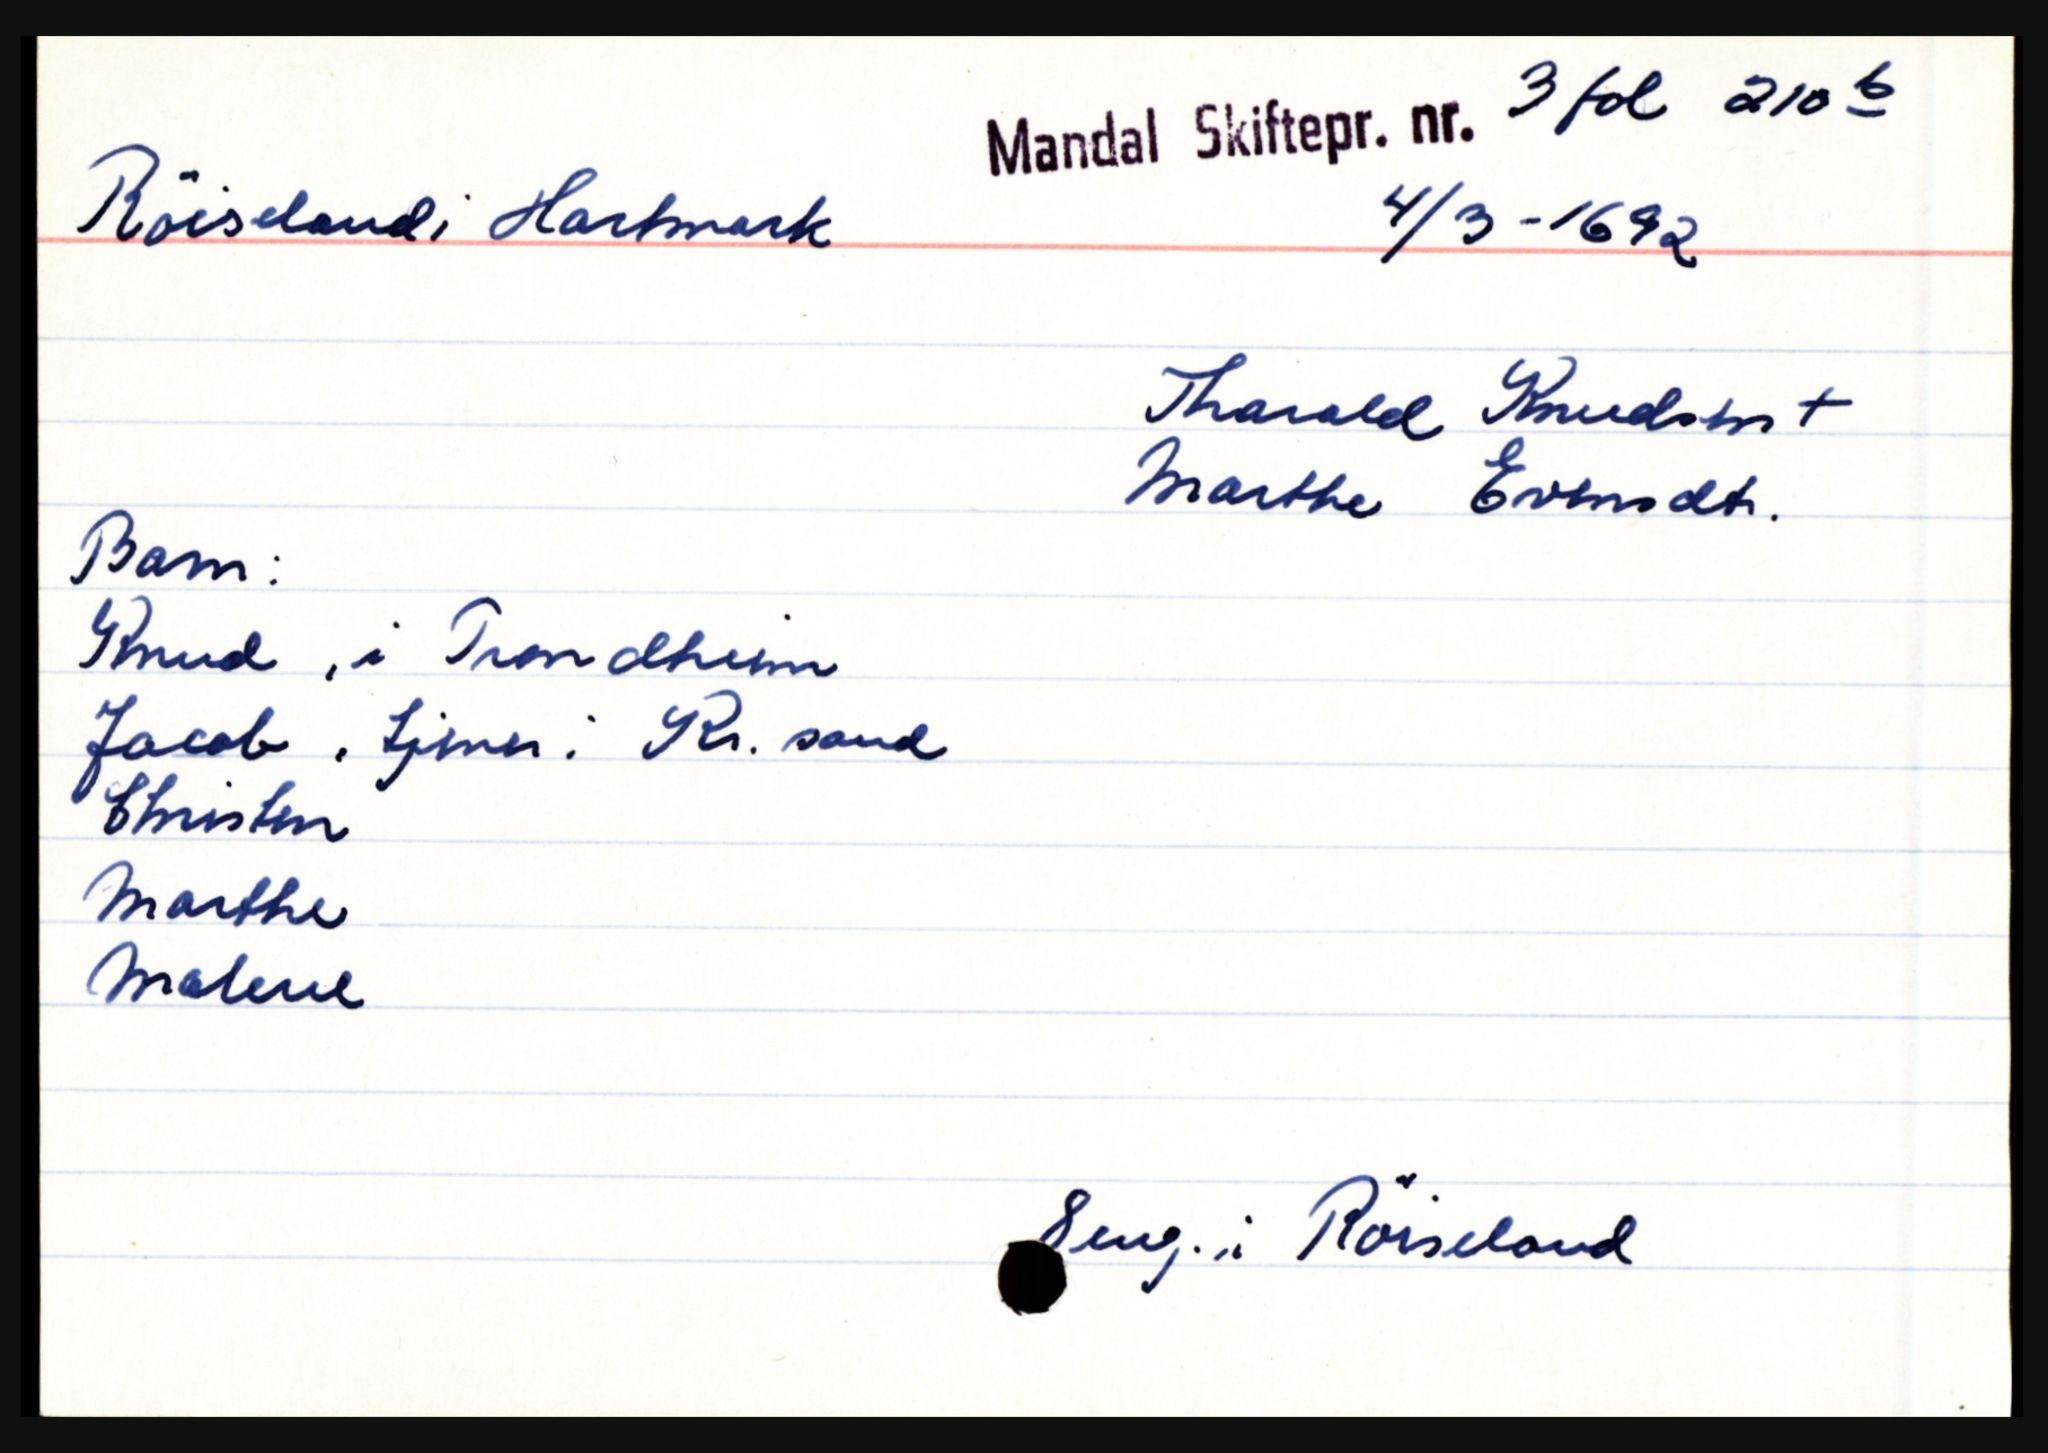 Mandal Skiftepr. nr. 3 fol 210 b
Röiseland i Hartmark 4/3 - 1692
Tharald Knudsen +
Marthe Evensdtr.
Barn:
Knud, i Trondheim
Jacob, tjener i Kr. sand
Christen
Marthe
Malene
8 eng. i Röiseland